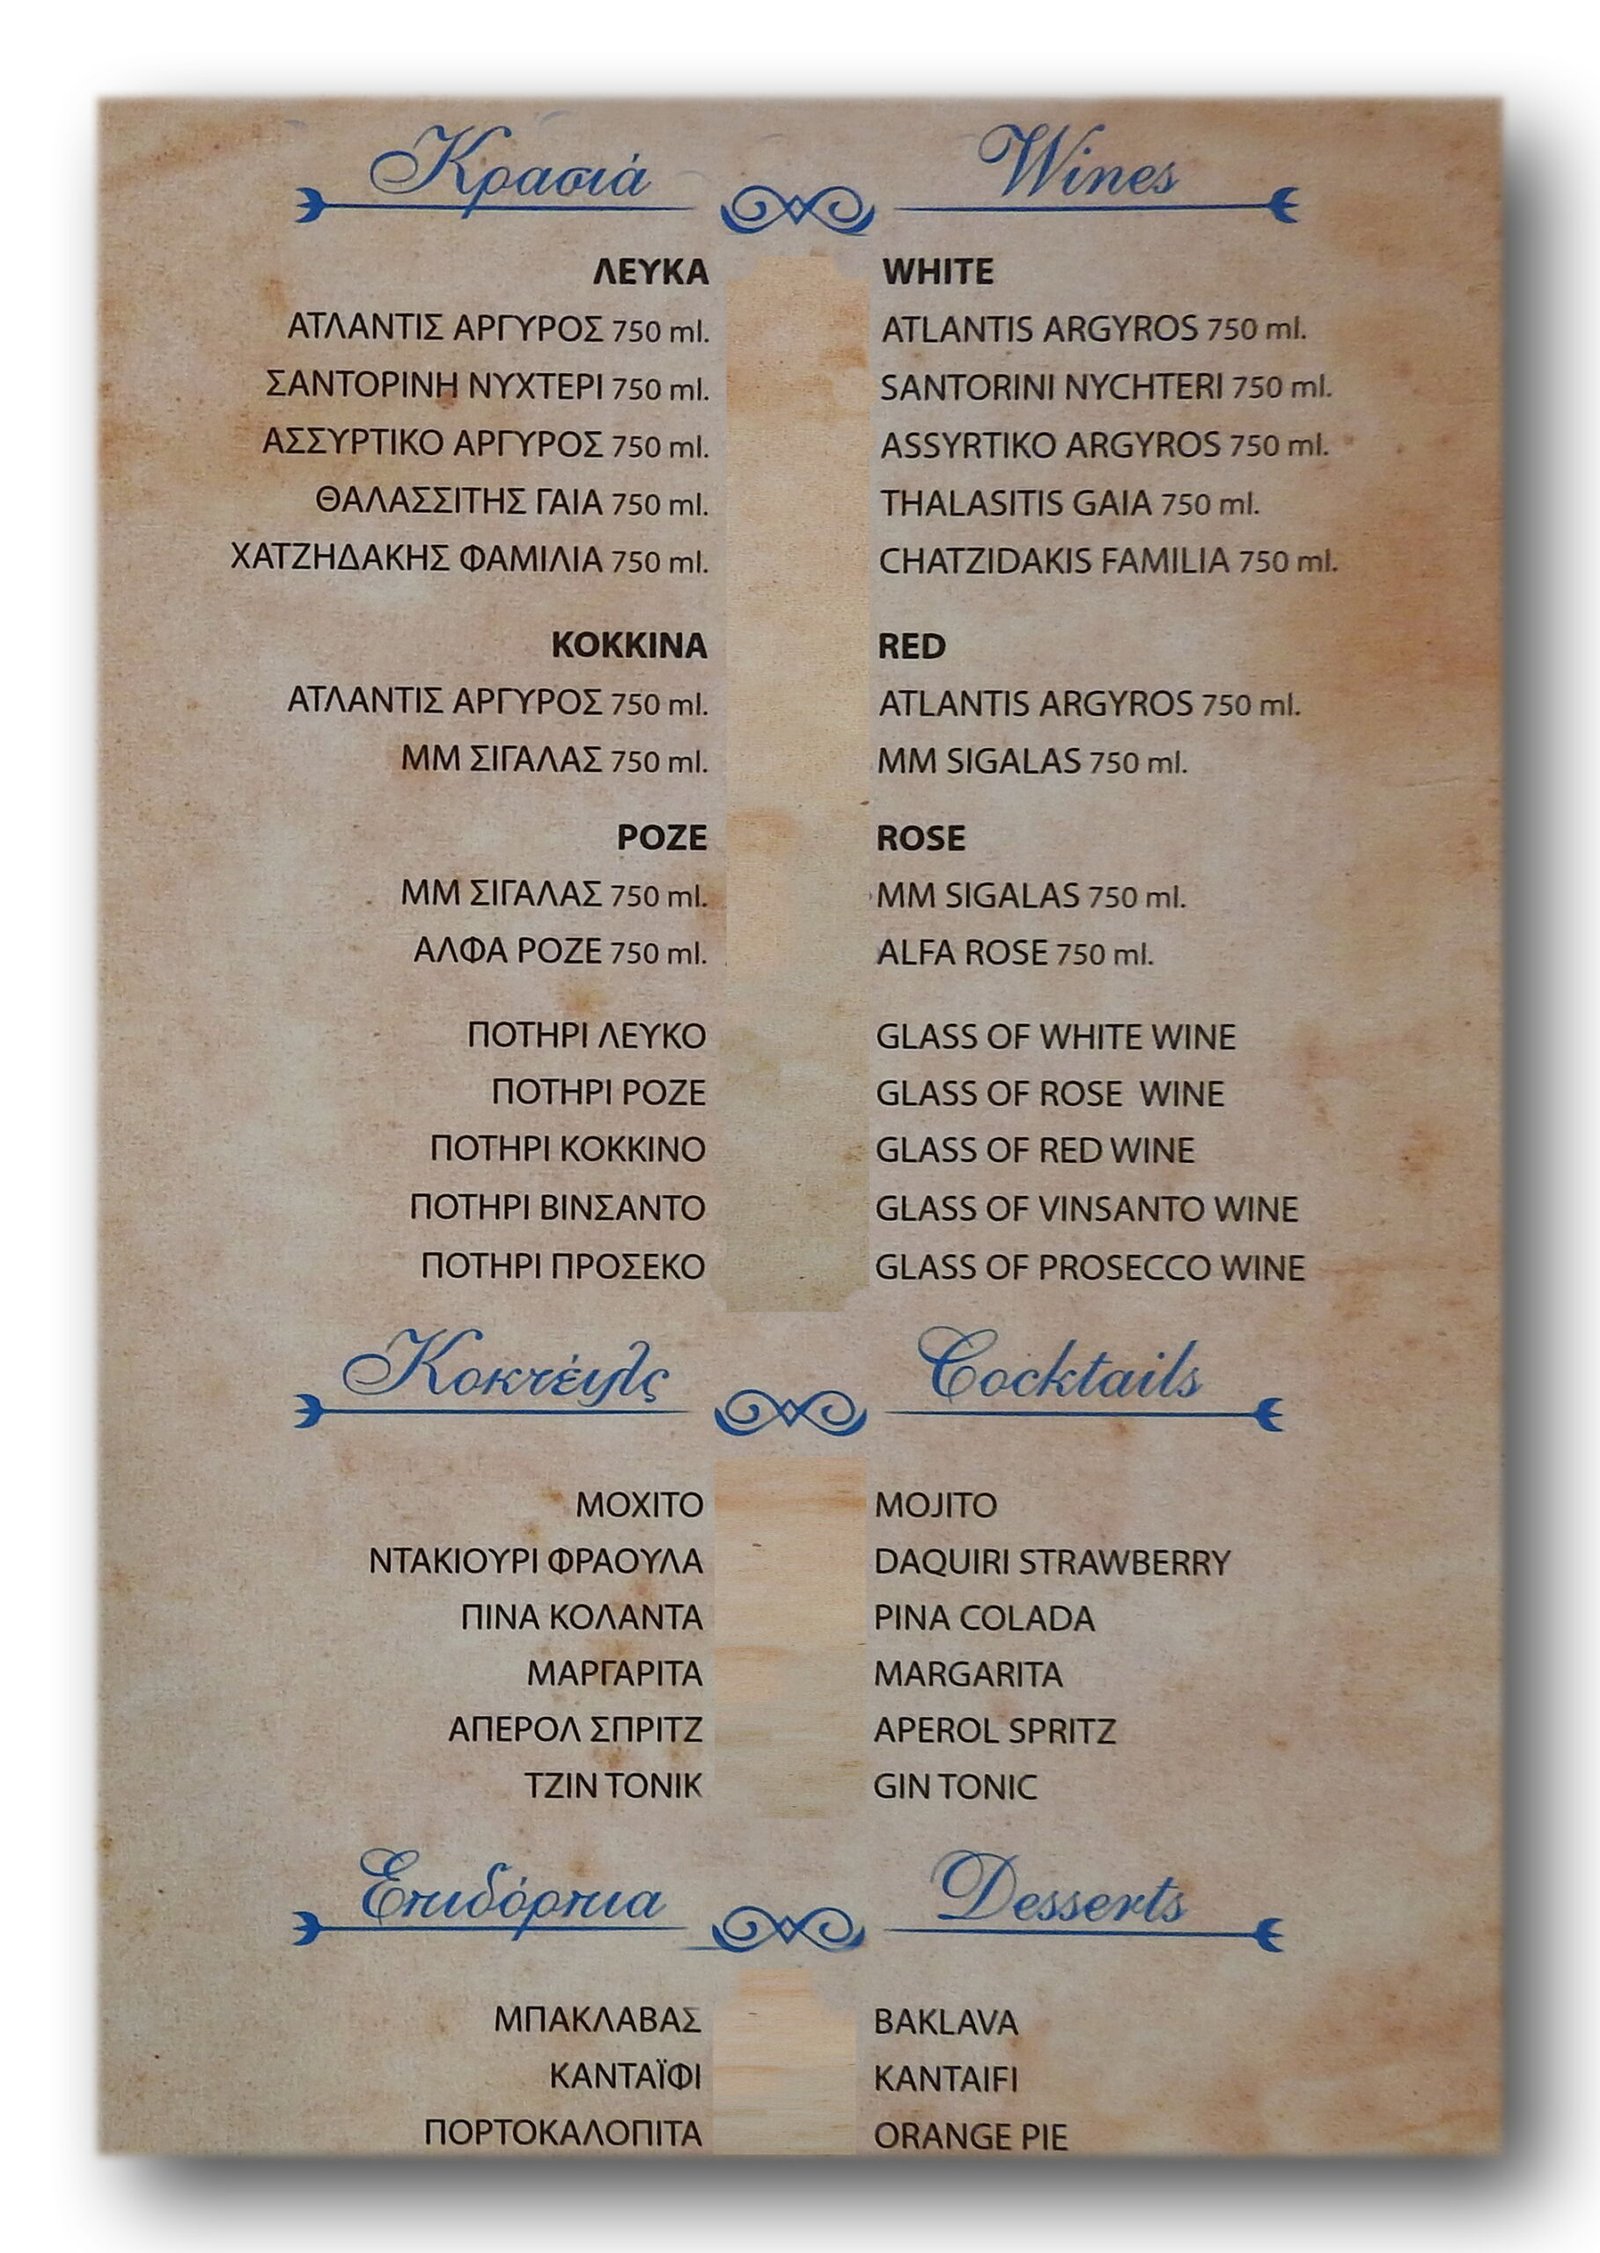 Κρασιά Wines
ΛΕΥΚΑ WHITE
ΑΤΛΑΝΤΙΣ ΑΡΓΥΡΟΣ 750 ml. ATLANTIS ARGYROS 750 ml.
ΣΑΝΤΟΡΙΝΗ ΝΥΧΤΕΡΙ 750 ml. SANTORINI NYCHTERI 750 ml.
ΑΣΣΥΡΤΙΚΟ ΑΡΓΥΡΟΣ 750 ml. ASSYRTIKO ARGYROS 750 ml.
ΘΑΛΑΣΣΙΤΗΣ ΓΑΙΑ 750 ml. THALASITIS GAIA 750 ml.
ΧΑΤΖΗΔΑΚΗΣ ΦΑΜΙΛΙΑ 750 ml. CHATZIDAKIS FAMILIA 750 ml.
ΚΟΚΚΙΝΑ RED
ΑΤΛΑΝΤΙΣ ΑΡΓΥΡΟΣ 750 ml. ATLANTIS ARGYROS 750 ml.
ΜΜ ΣΙΓΑΛΑΣ 750 ml. MM SIGALAS 750 ml.
ΡΟΖΕ ROSE
ΜΜ ΣΙΓΑΛΑΣ 750 ml. MM SIGALAS 750 ml.
ΑΛΦΑ ΡΟΖΕ 750 ml. ALFA ROSE 750 ml.
ΠΟΤΗΡΙ ΛΕΥΚΟ GLASS OF WHITE WINE
ΠΟΤΗΡΙ ΡΟΖΕ GLASS OF ROSE WINE
ΠΟΤΗΡΙ ΚΟΚΚΙΝΟ GLASS OF RED WINE
ΠΟΤΗΡΙ ΒΙΝΣΑΝΤΟ GLASS OF VINSANTO WINE
ΠΟΤΗΡΙ ΠΡΟΣΕΚΟ GLASS OF PROSECCO WINE
Κοκτέιλς Cocktails
ΜΟΧΙΤΟ MOJITO
ΝΤΑΚΙΟΥΡΙ ΦΡΑΟΥΛΑ DAQUIRI STRAWBERRY
ΠΙΝΑ ΚΟΛΑΝΤΑ PINA COLADA
ΜΑΡΓΑΡΙΤΑ MARGARITA
ΑΠΕΡΟΛ ΣΠΡΙΤΖ APEROL SPRITZ
ΤΖΙΝ ΤΟΝΙΚ GIN TONIC
Επιδόρπια Desserts
ΜΠΑΚΛΑΒΑΣ BAKLAVA
ΚΑΝΤΑΪΦΙ KANTAIFI
ΠΟΡΤΟΚΑΛΟΠΙΤΑ ORANGE PIE